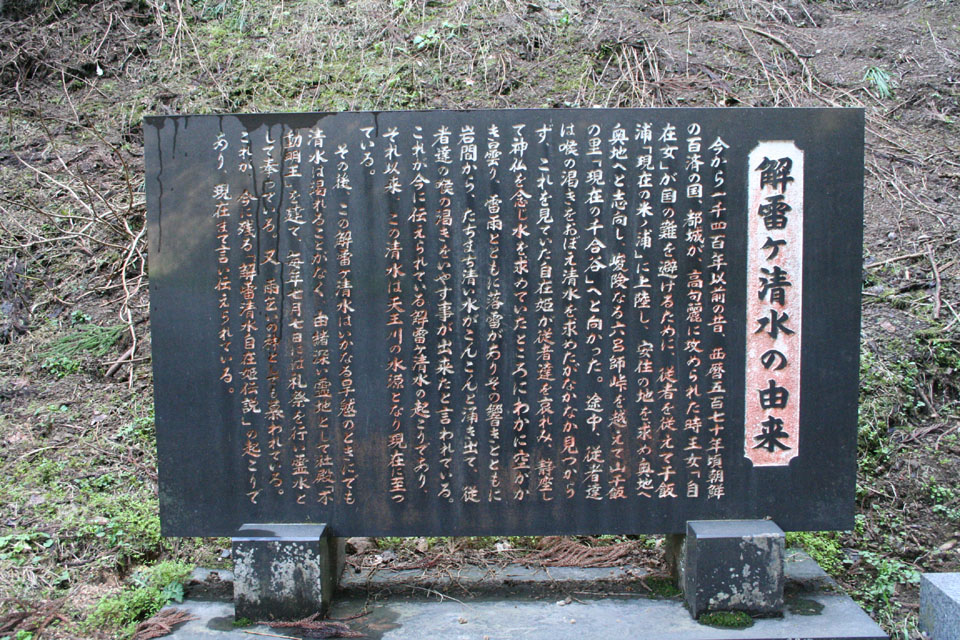 解雷ヶ清水の由来
今から一千四百年以前の昔 西暦五百七十年頃朝鮮
の百済の国、都城が、高句麗に攻められた時王女「自
在女」が国の難を避けるために、従者を従えて千飯
浦「現在の米ノ浦」に上陸し、安住の地を求め奥地へ
奥地へと志向し、峻険なる六呂師峠を越えて山千飯
の里「現在の千合谷」へと向かった。途中、従者達
は喉の渇きをおぼえ清水を求めたがなかなか見つから
ず、これを見ていた自在姫が従者達を哀れみ、静座し
て神仏を念じ水を求めていたところにわかに空がか
き曇り、雷雨とともに落雷がありその響きとともに
岩間から、たちまち清い水がこんこんと涌き出て、従
者達の喉の渇きをいやす事が出来たと言われている。
これが今に伝えられている解雷ヶ清水の起こりであり、
それ以来、この清水は天王川の水源となり現在に至っ
ている。
その後、この解雷ヶ清水はいかなる旱魃のときにでも
清水は涸れることがなく、由緒深い霊地として社殿「不
動明王」を建て、毎年七月七日には礼祭を行い霊水と
して奉っている。又、雨乞いの神としても崇われている。
これが、今に残る「解雷清水自在姫伝説」の起こりで
あり、現在まで言い伝えられている。